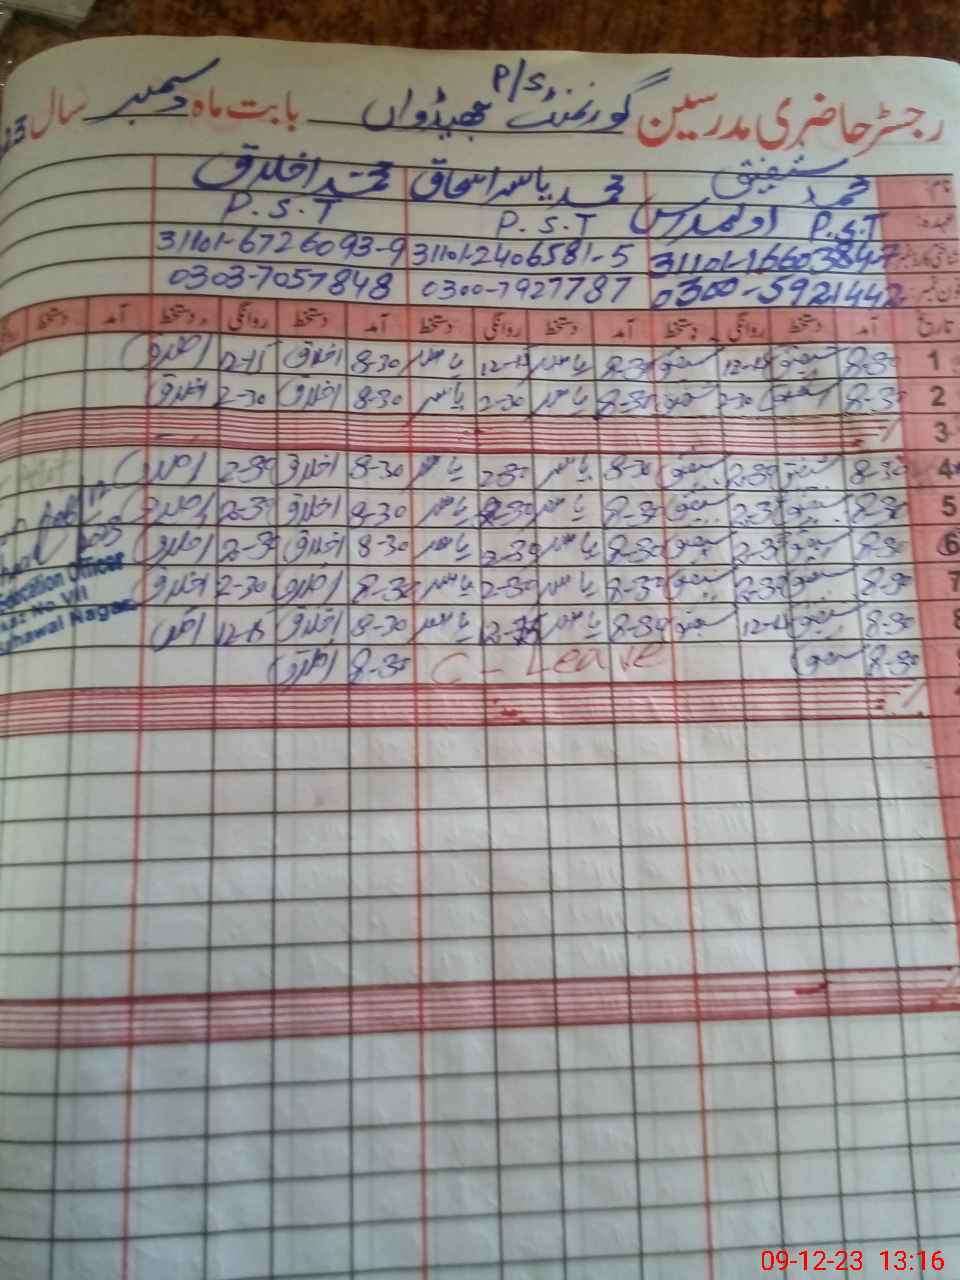 P/S
رجسٹر حاضری مدرسین گورنمنٹ بھیڈواں بابت ماہ دسمبر سال 23
نام محمد شفیق محمد یاسر اسحاق محمد اخلاق
عہدہ P.S.T اول مدرس P.S.T P.S.T
31101-1660384-7 31101-2406581-5 31101-6726093-9
فون نمبر 0300-5921442 0300-7927787 0303-7057848
تاریخ آمد دستخط روانگی دستخط آمد دستخط روانگی دستخط آمد دستخط روانگی دستخط آمد دستخط
1 8-30 شفیق 12-15 شفیق 8-30 یاسر 12-15 یاسر 8-30 اخلاق 12-15 اخلاق
2 8-30 شفیق 2-30 شفیق 8-30 یاسر 2-30 یاسر 8-30 اخلاق 2-30 اخلاق
3
4 8-30 شفیق 2-30 شفیق 8-30 یاسر 2-30 یاسر 8-30 اخلاق 2-30 اخلاق
5 8-30 شفیق 2-30 شفیق 8-30 یاسر 2-30 یاسر 8-30 اخلاق 2-30 اخلاق
6 8-30 شفیق 2-30 شفیق 8-30 یاسر 2-30 یاسر 8-30 اخلاق 2-30 اخلاق
7 8-30 شفیق 2-30 شفیق 8-30 یاسر 2-30 یاسر 8-30 اخلاق 2-30 اخلاق
8 8-30 شفیق 12-15 شفیق 8-30 یاسر 12-15 یاسر 8-30 اخلاق 12-15 اخلاق
8-30 شفیق C-Leave 8-30 اخلاق
Education Officer
No VII
Nagar
09-12-23 13:16